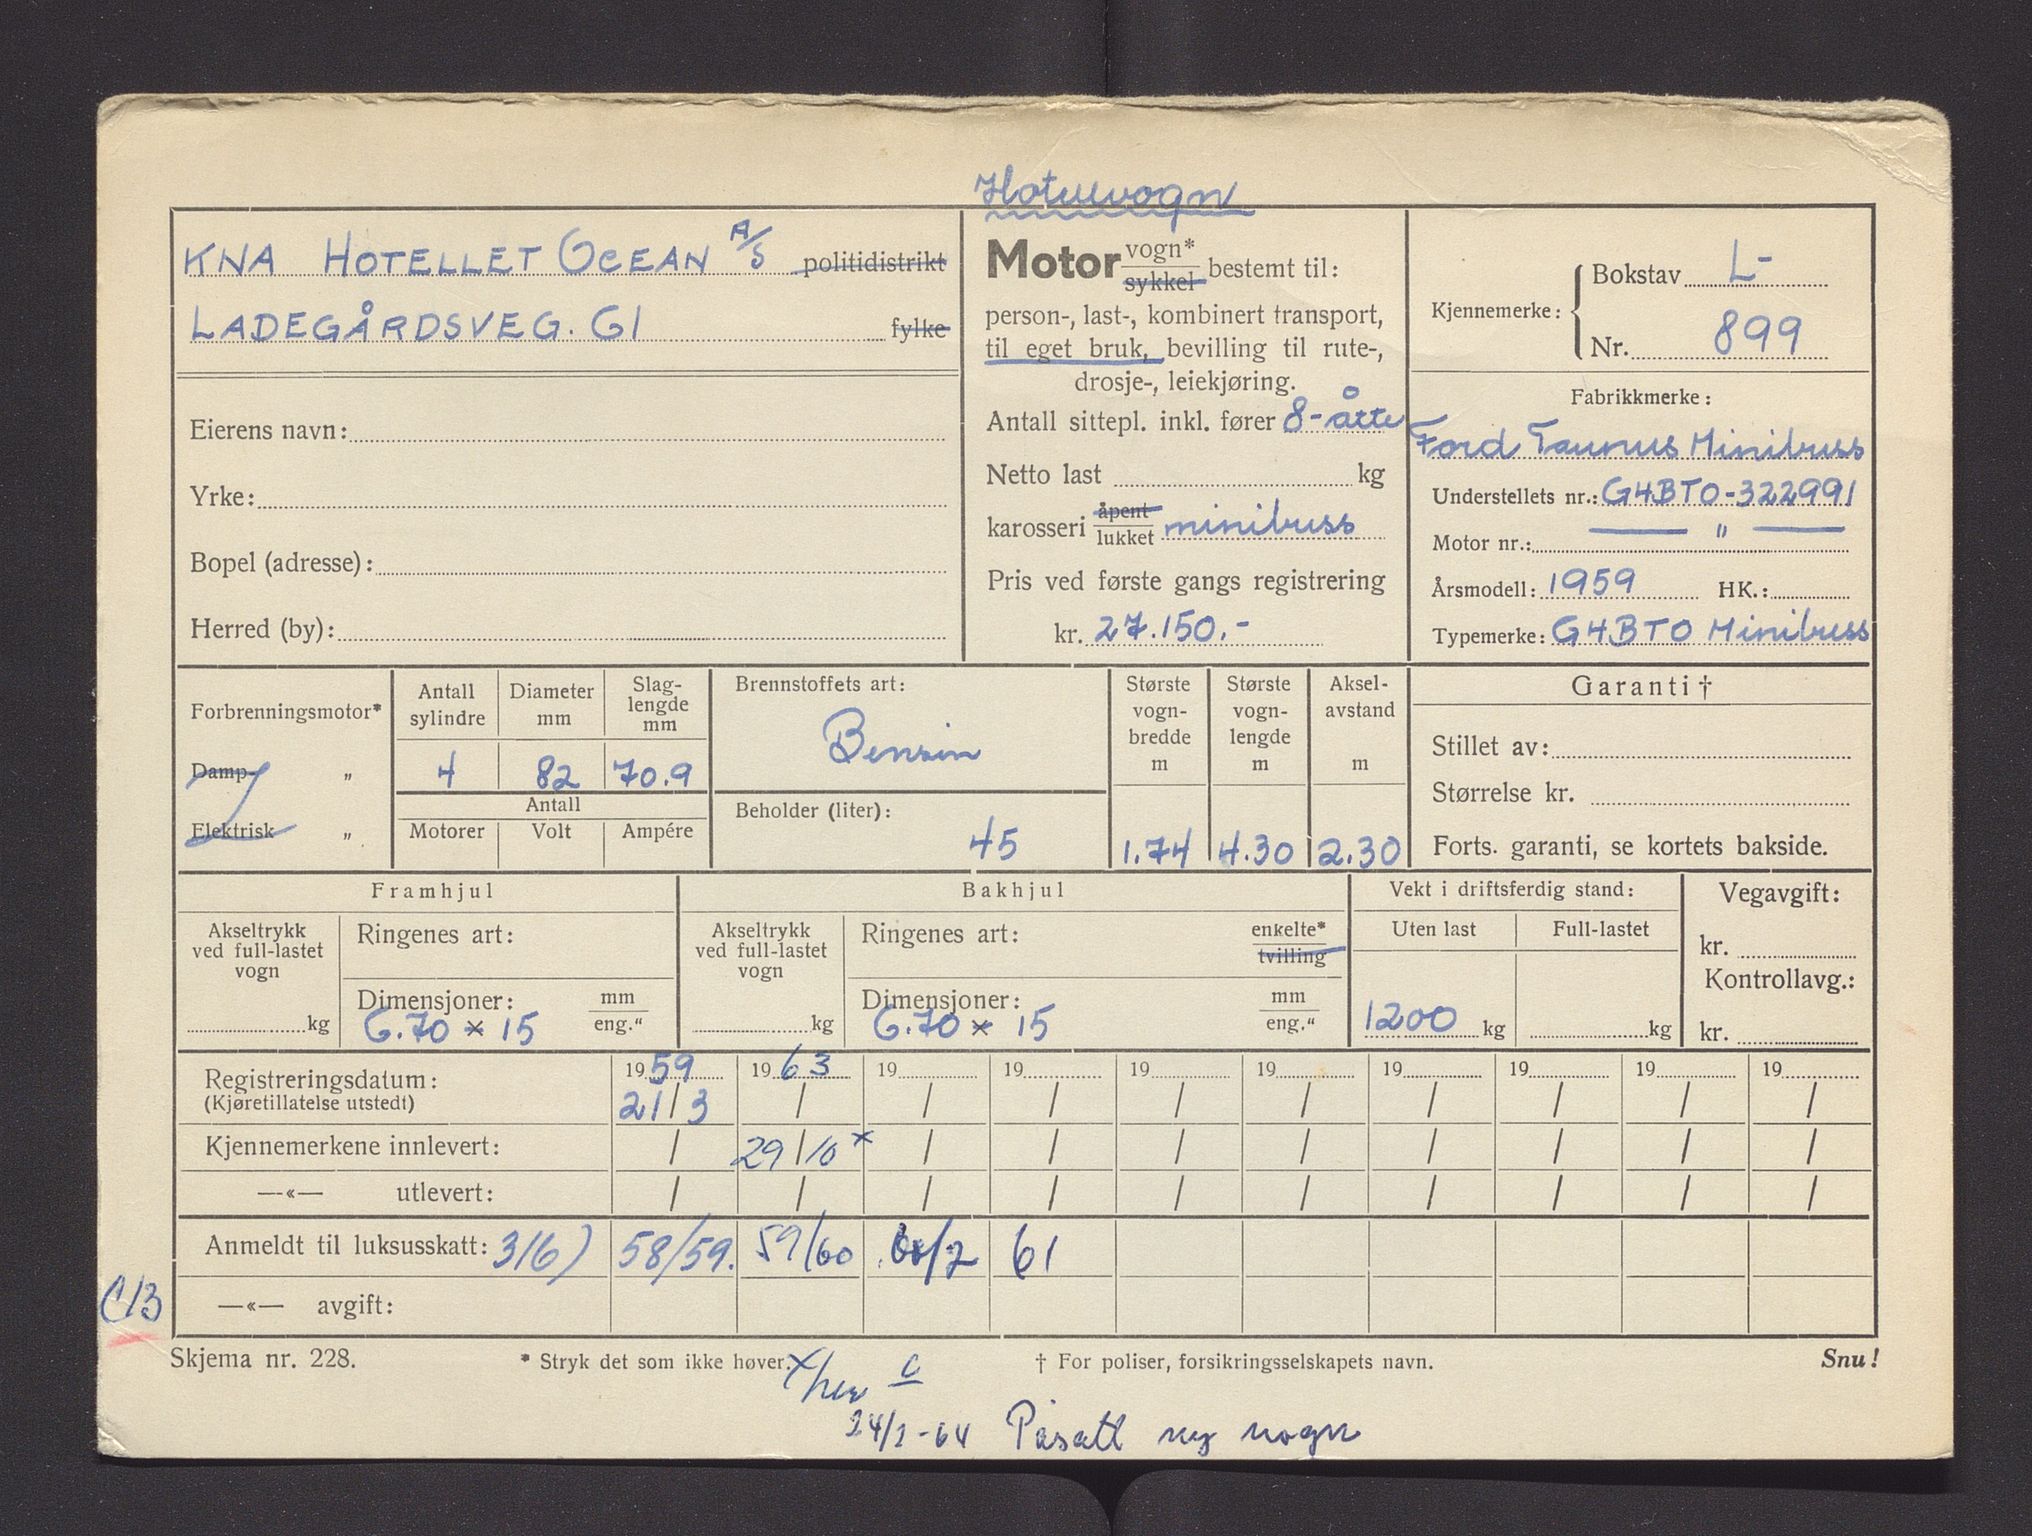 Hotellvogn
KNA HOTELLET OCEAN A/S politidistrikt
LADEGÅRDSVEG. 61 fylke
Eierens navn:
Yrke:
Bopel (adresse):
Herred (by):
Motor vogn* sykkel bestemt til:
person-, last-, kombinert transport,
til eget bruk, bevilling til rute-,
drosje-, leiekjøring.
Antall sittepl. inkl. fører 8-åtte
Netto last kg
karosseri åpent lukket minibuss
Pris ved første gangs registrering
kr. 27.150.-
Kjennemerke: Bokstav L-
Nr. 899
Fabrikkmerke:
Ford Taunus Minibuss
Understellets nr.: G4BTO-322991
Motor nr.: — " —
Årsmodell: 1959 HK.:
Typemerke: G4BTO Minibuss
Forbrenningsmotor*
Damp- "
Elektrisk "
Antall sylindre
Diameter mm
Slag-lengde mm
4 82 70.9
Antall
Motorer Volt Ampére
Brennstoffets art:
Bensin
Beholder (liter):
45
Største vogn-bredde m
1.74
Største vogn-lengde m
4.30
Aksel-avstand m
2.30
Garanti †
Stillet av:
Størrelse kr.
Forts. garanti, se kortets bakside.
Framhjul
Akseltrykk ved full-lastet vogn
kg
Ringenes art:
Dimensjoner: mm eng."
6.70 x 15
Bakhjul
Akseltrykk ved full-lastet vogn
kg
Ringenes art: enkelte* tvilling
Dimensjoner: mm eng."
6.70 x 15
Vekt i driftsferdig stand:
Uten last Full-lastet
1200 kg kg
Vegavgift:
kr.
Kontrollavg.:
kr.
1959 1963 19 19 19 19 19 19 19 19
Registreringsdatum:
(Kjøretillatelse utstedt)
21/3 / / / / / / / / /
Kjennemerkene innlevert: / 29/10 x / / / / / / / /
—«— utlevert: / / / / / / / / / /
Anmeldt til luksusskatt: 316) 58/59. 59/60 60/2 61
C13
—«— avgift:
Skjema nr. 228.
* Stryk det som ikke høver.
† For poliser, forsikringsselskapets navn.
Snu!
x/ C
24/2-64 Påsatt ny vogn